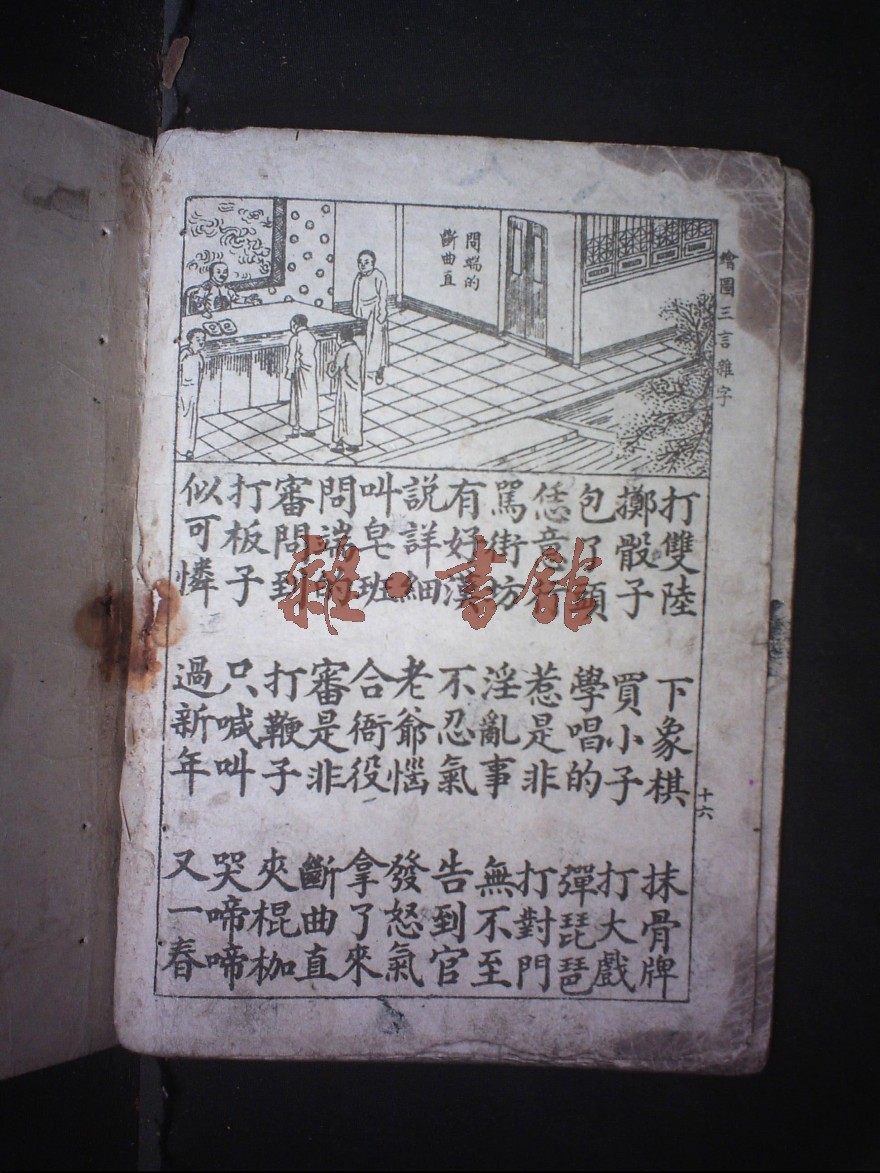 繪圖三言雜字
問端的
斷曲直
打雙陸 下象棋 抹骨牌
擲骰子 買小子 打大戲
包了頭 學唱的 彈琵琶
恁意行 惹是非 打對門
罵街坊 淫亂事 無不至
有好漢 不忍氣 告到官
說詳細 老爺惱 發怒氣
叫皂班 合衙役 拿了來
問端的 審是非 斷曲直
審問到 打鞭子 夾棍枷
打板子 只喊叫 哭啼啼
似可憐 過新年 又一春
十六
雜·書館